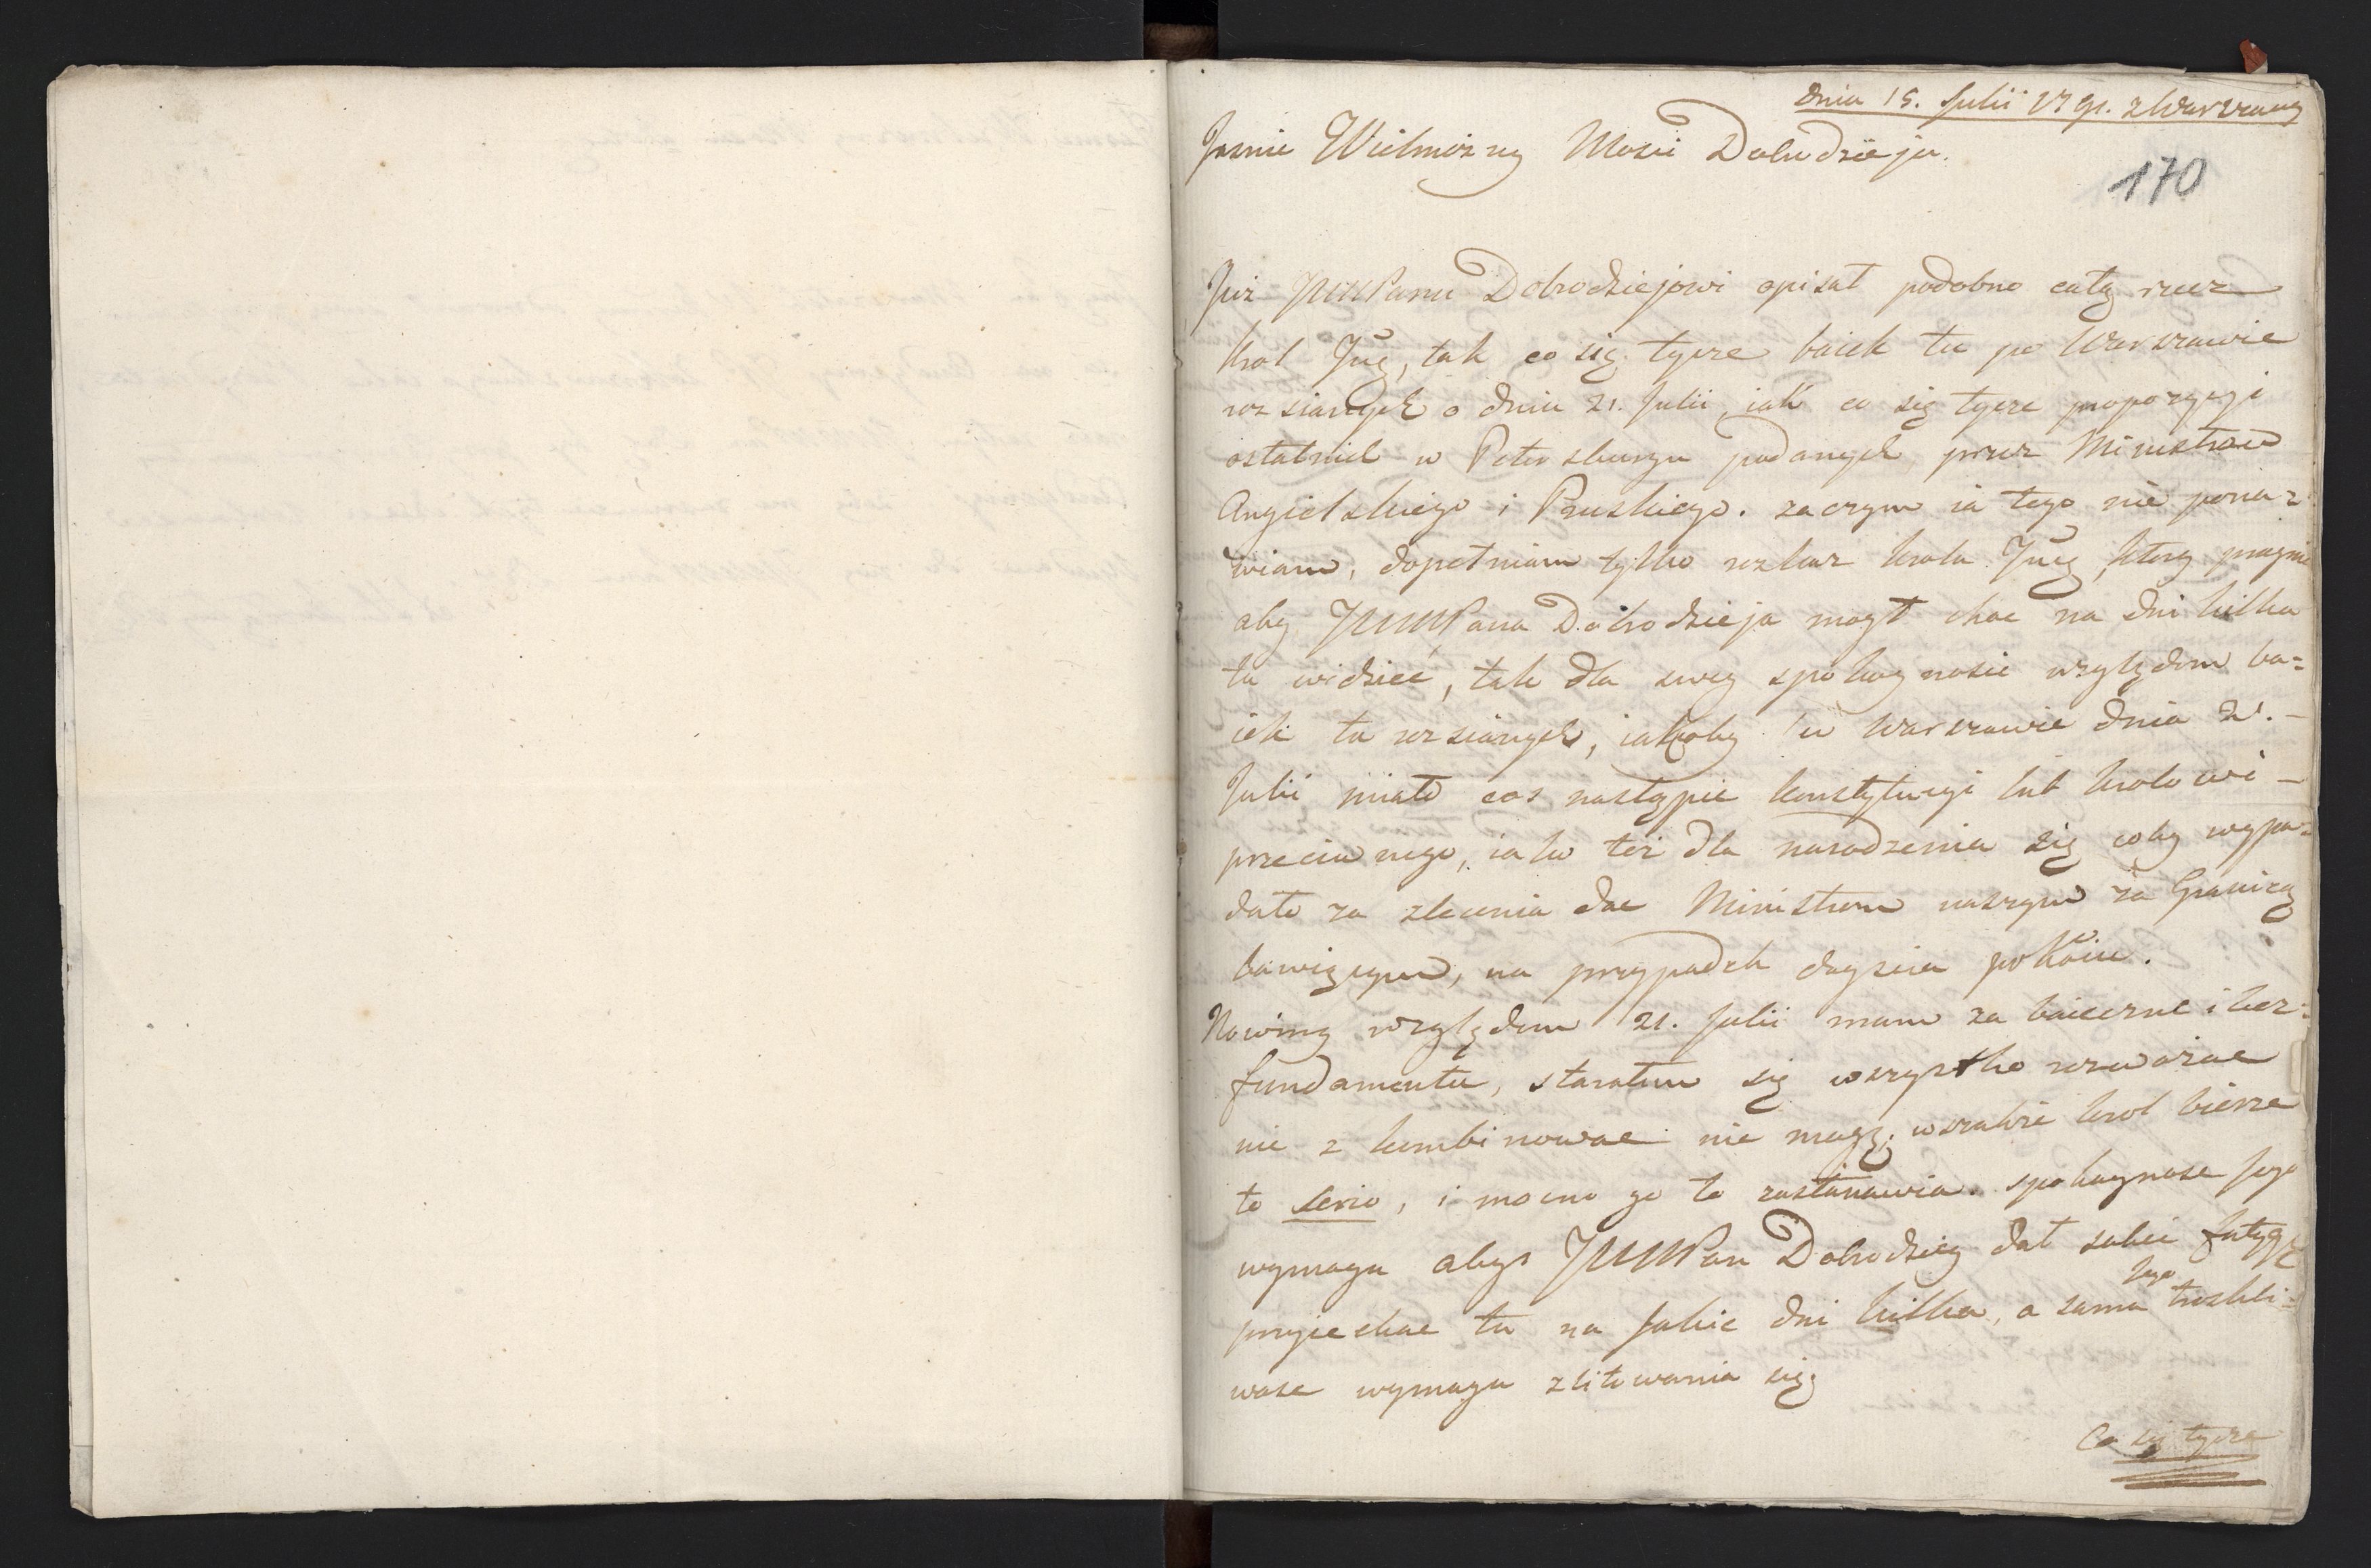 Dnia 15. Julii 1791. z Warszawy
Jasnie Wielmożny Mosci Dobrodzieju.
170
Juz JWWPanu Dobrodziejowi opisał podobno całą rzecz
Krol Jmć, tak co się tycze baiek tu po Warszawie
rozsianych o dniu 21. Julii, iak co się tycze propozycyi
ostatnich w Petersburgu podanych przez Ministrow
Angielskiego i Pruskiego. zaczym ia tego nie pona=
wiam, dopełniam tylko rozkaz Krola Jmci, ktory pragnie
aby JWWPana Dobrodzieja mogł choc na dni kilka
tu widzieć, tak dla swey spokoynosci względem ba=
iek tu rozsianych, iakoby tu w Warszawie dnia 21. -
Julii miało cos nastąpic konstytucyi lub krolowi -
przeciwnego, iako też dla naradzenia się coby wypa=
dało za zlecenia dac Ministrom naszym za Granicą
bawiącym, na przypadek doyscia pokoiu.
Nowiny względem 21. Julii mam za baieczne i bez=
fundamentu, starałem się wszystko rozważac
nic z kombinowac nie mogę; wszakże krol bierze
to serio, i mocno go to zastanawia. spokoynosc Jego
wymaga abys JWWPan Dobrodziey dał sobie fatygę
przyiechac tu na jakie dni kilka, a sama Jego troskli=
wosc wymaga zlitowania się.
Co się tycze